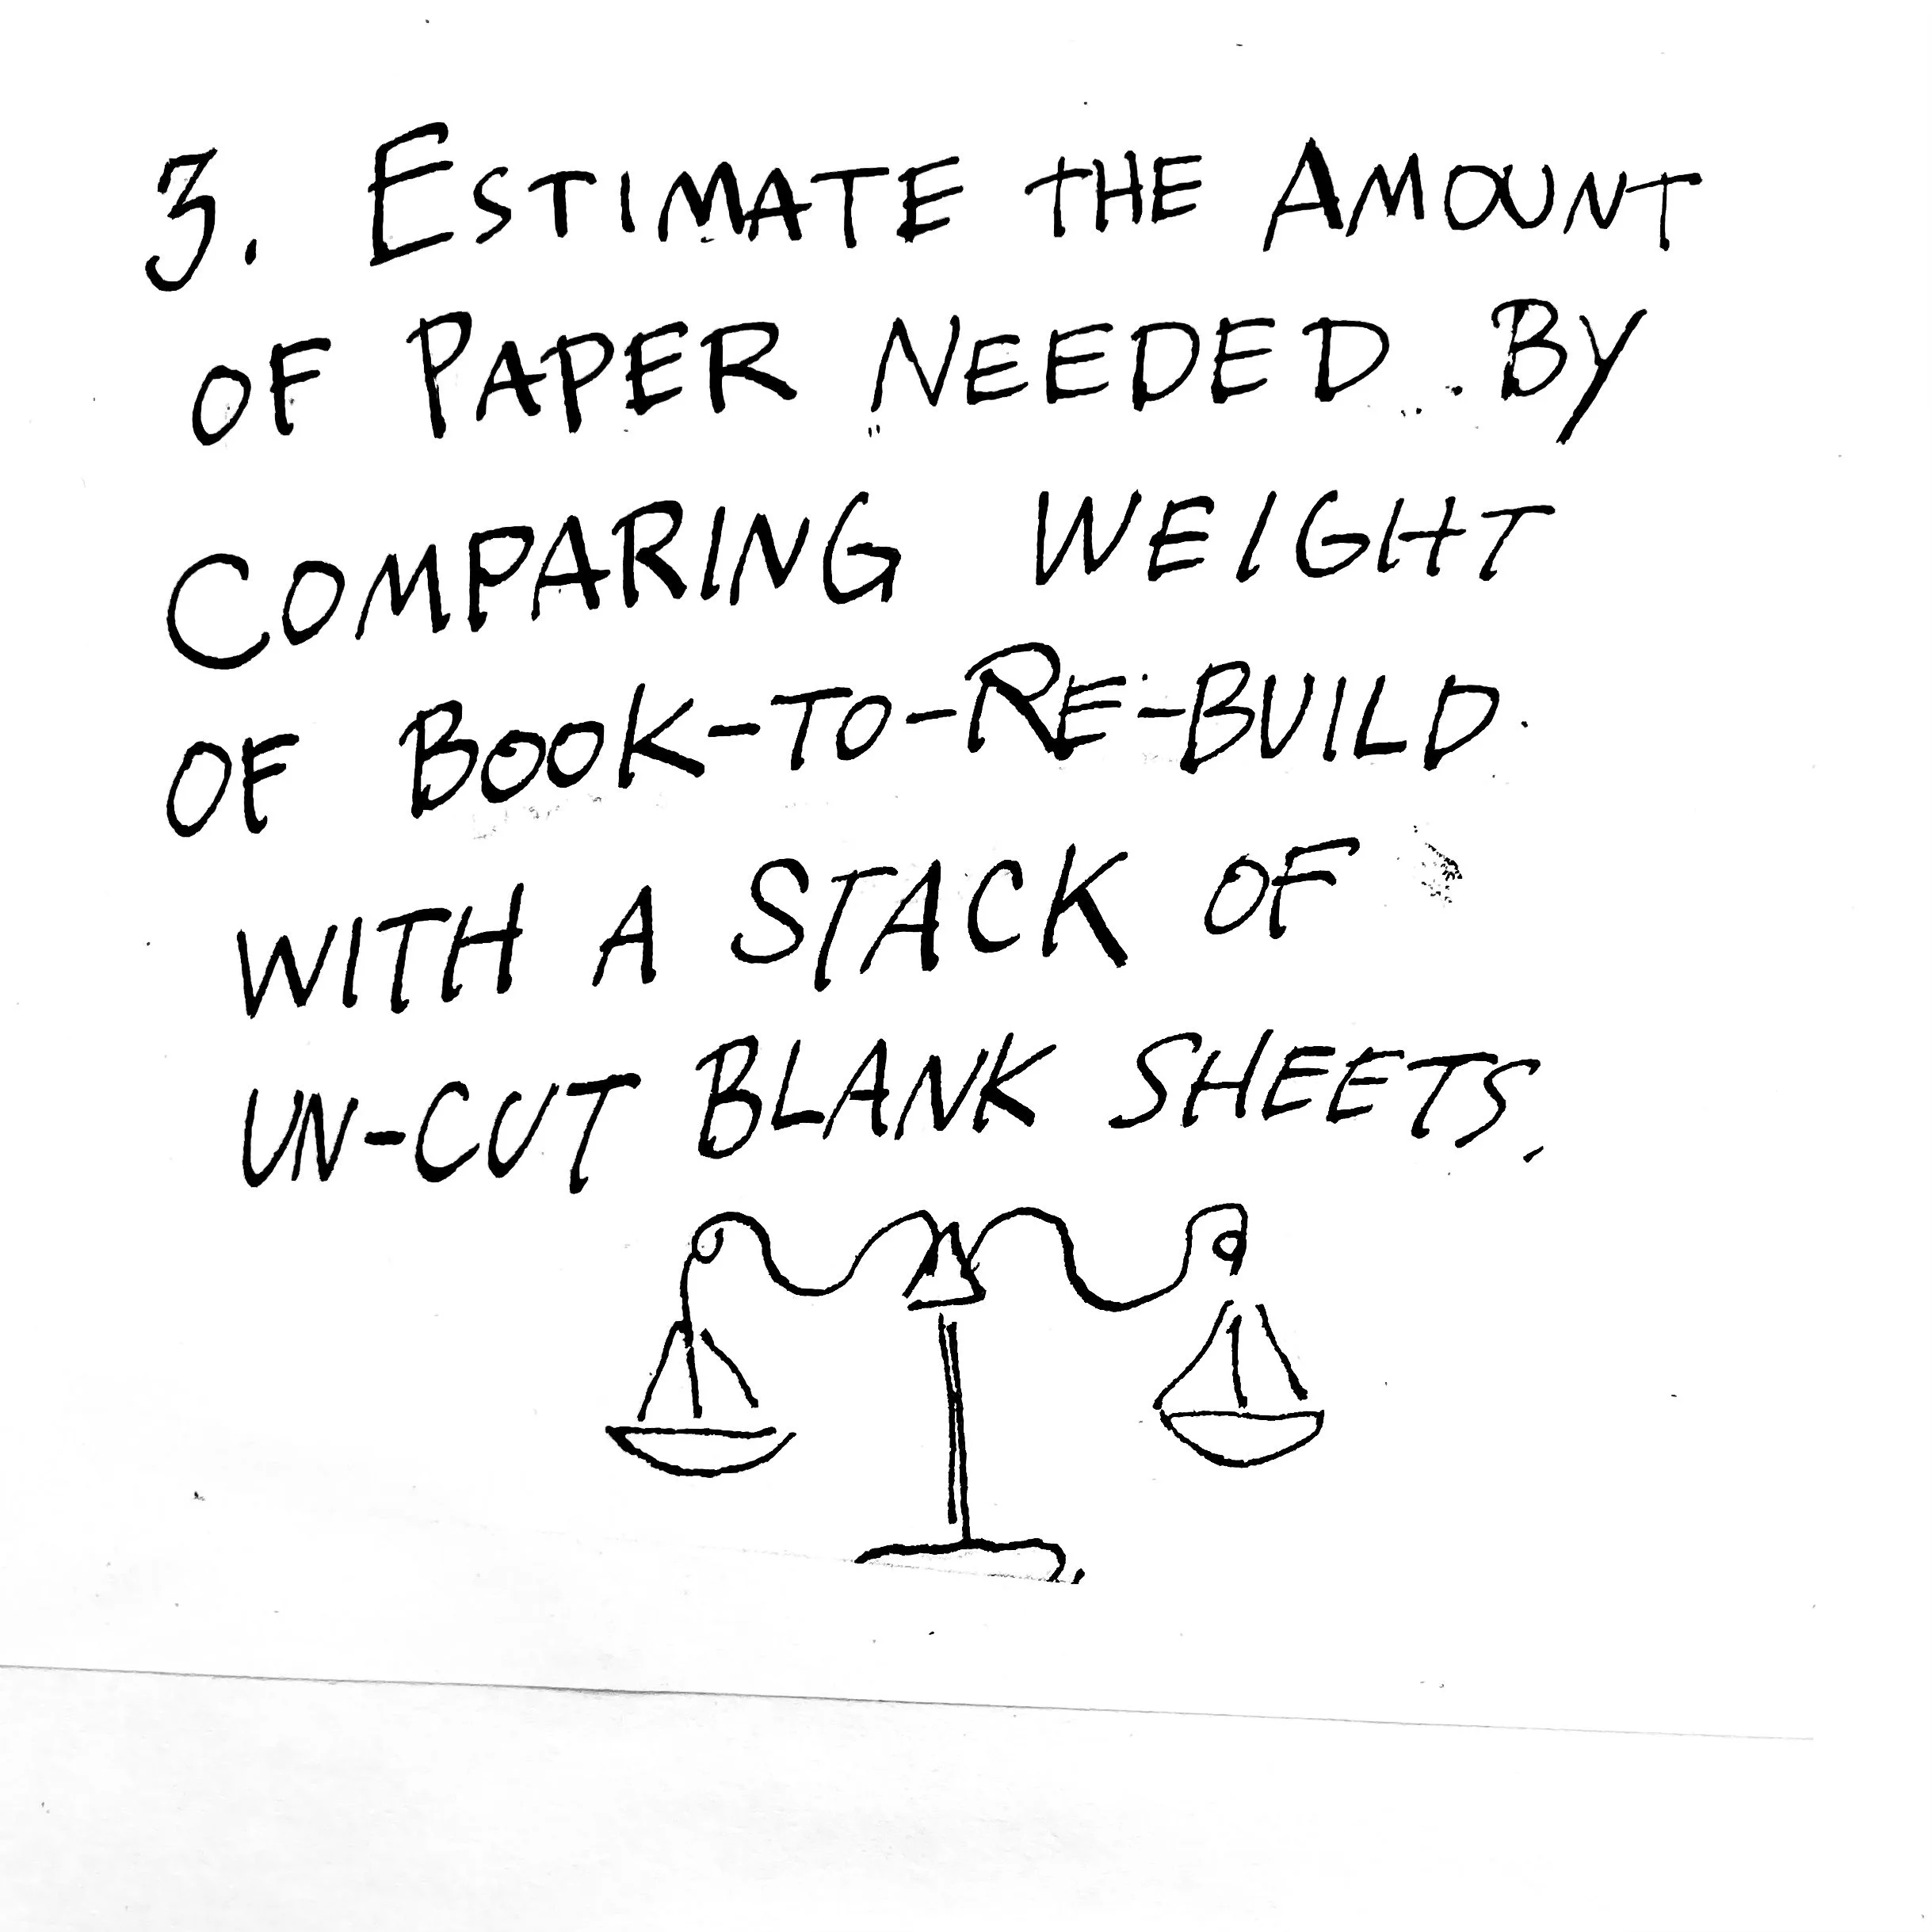 3. ESTIMATE THE AMOUNT
OF PAPER NEEDED.. BY
COMPARING WEIGHT
OF BOOK-TO-RE-BUILD.
WITH A STACK OF
UN-CUT BLANK SHEETS.